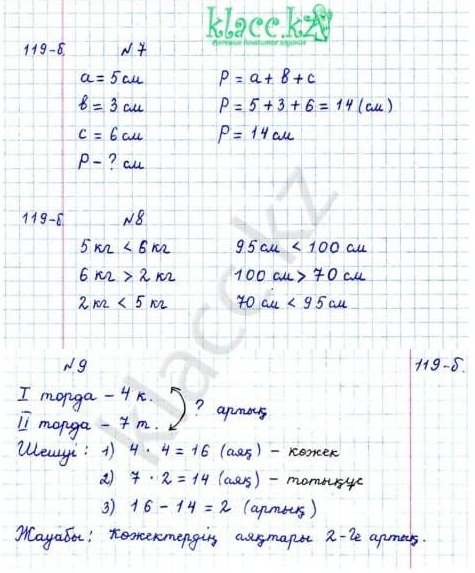 klacc.kz
готовые домашние задания
119-б. №7
a = 5 см P = a + в + c
в = 3 см P = 5 + 3 + 6 = 14 (см)
c = 6 см P = 14 см
P - ? см
119-б №8
5 кг < 6 кг 95 см < 100 см
6 кг > 2 кг 100 см > 70 см
2 кг < 5 кг 70 см < 95 см
№9 119-б.
I торда - 4 к.
? артық
II торда - 7 т.
Шешуі: 1) 4 · 4 = 16 (аяқ) - көжек
2) 7 · 2 = 14 (аяқ) - тотықұс
3) 16 - 14 = 2 (артық)
Жауабы: Көжектердің аяқтары 2-ге артық.
klacc.kz